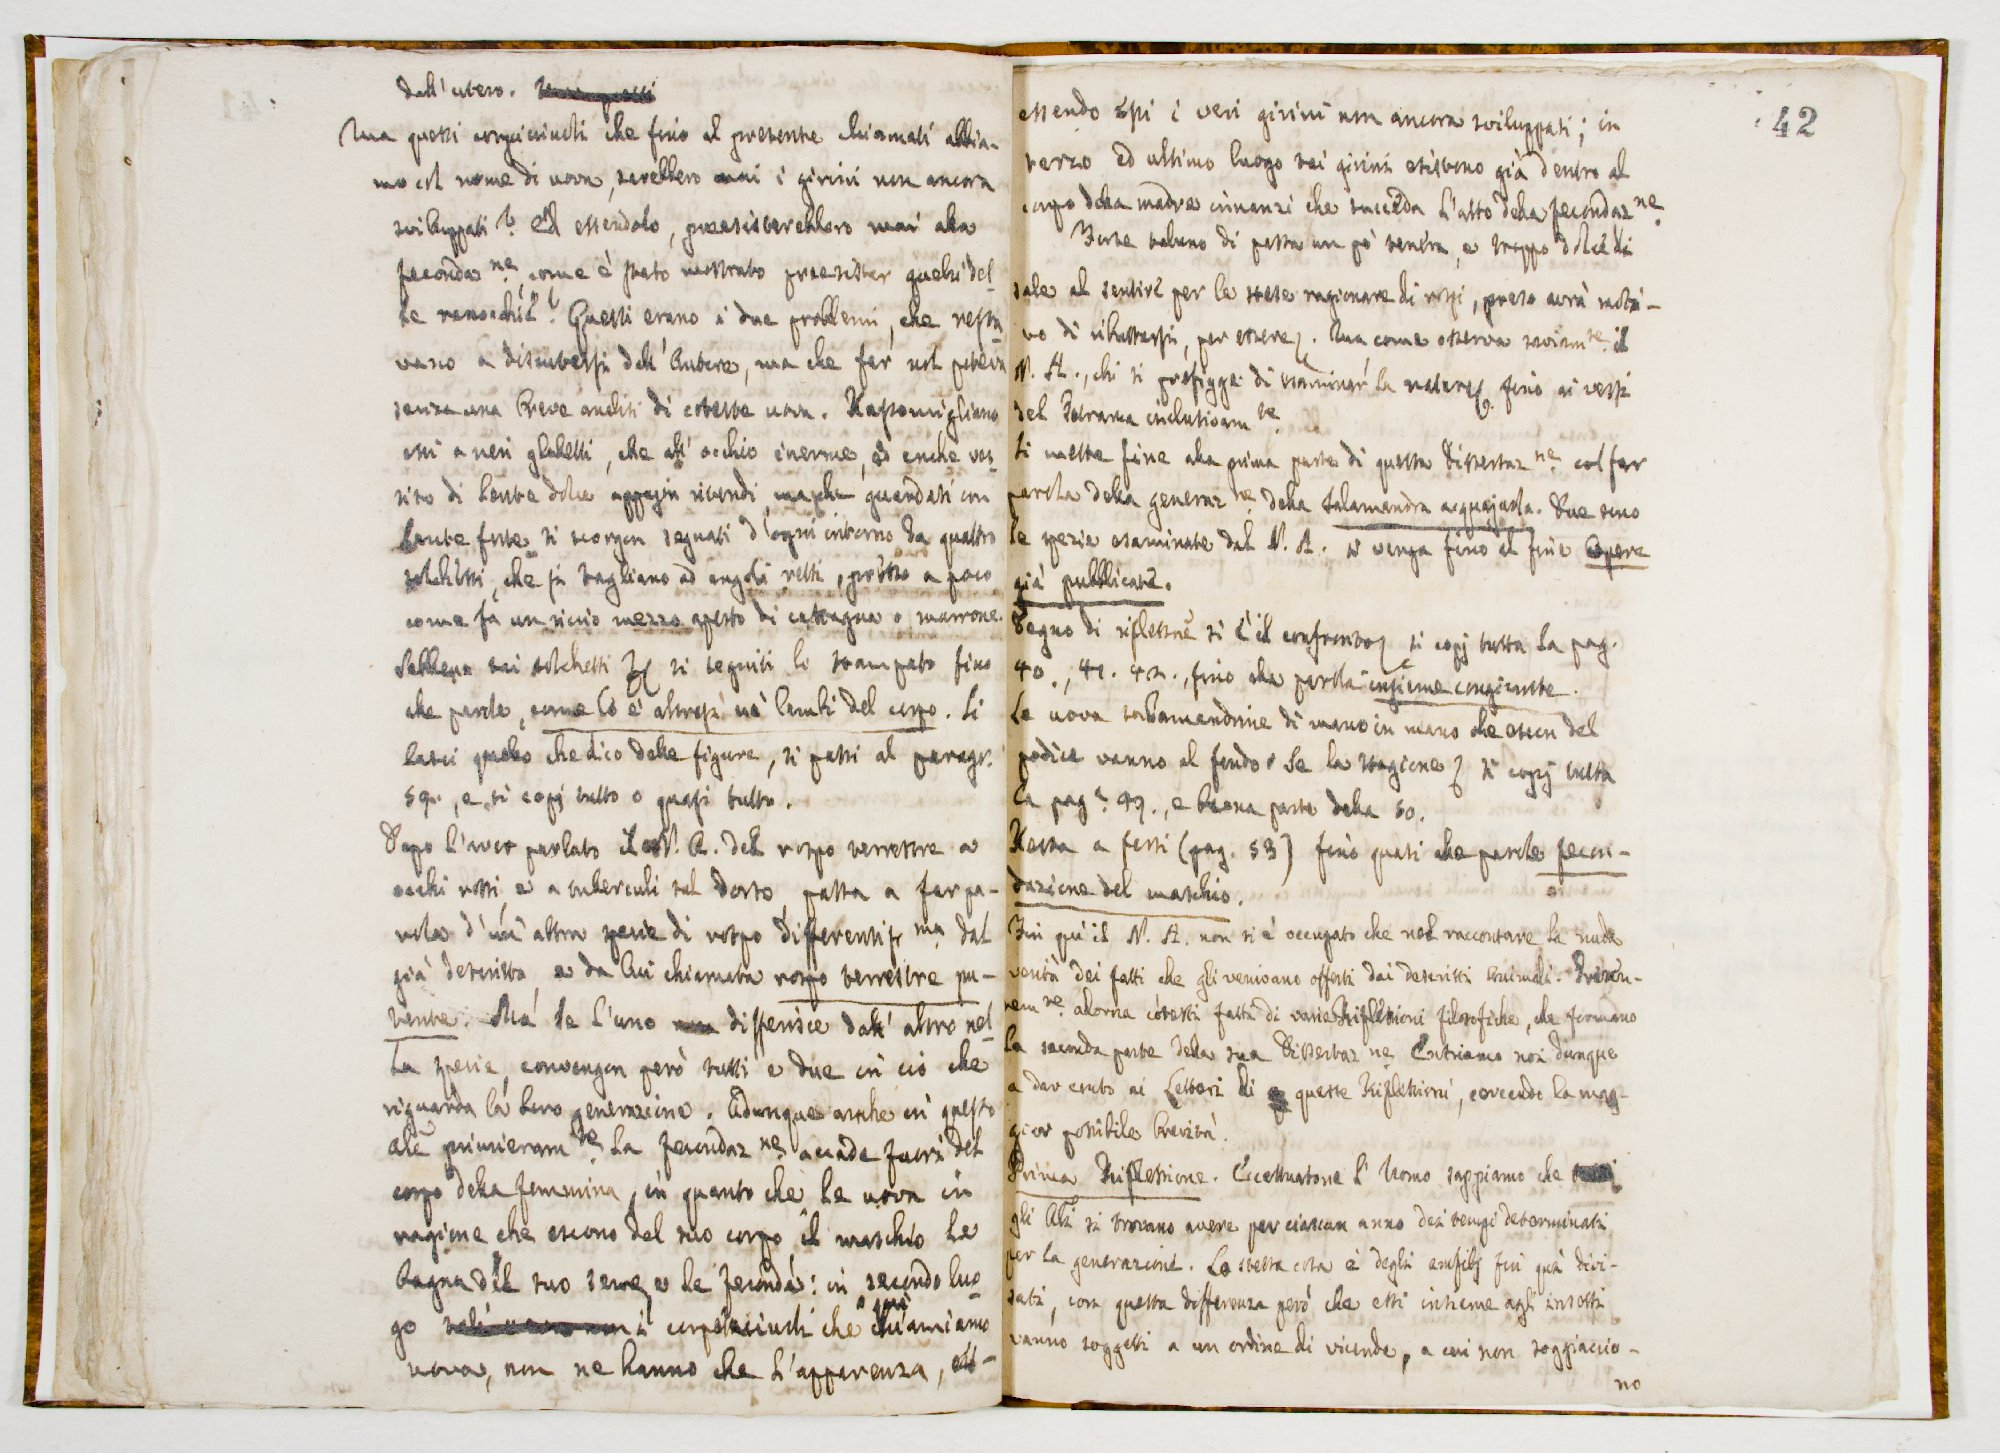 dall'utero.
Ma questi corpicciuoli che fino al presente chiamati abbia-
mo col nome di uova, sarebbero mai i girini non ancora
sviluppati? Ed essendolo, preesisterebbero mai alla
fecondaz.ne, come è stato mostrato preesister quelli del-
le ranocchie? Questi erano i due problemi, che resta-
vano a discutersi dall'Autore, ma che far nol poteva
senza una breve analisi di coteste uova. Rassomigliano
essi a neri globetti, che all'occhio inerme, ed anche ves-
tito di lente dolce appajon rotondi, ma guardati con
lente forte si scorgon segnati d'ogni intorno da quattro
solchetti, che si tagliano ad angoli retti, presso a poco
come fa un riccio mezzo aperto di castagna o marrone.
Sebben tai solchetti si seguiti lo stampato fino
che parole, come lo è altresì ne' lembi del corpo. Si
lasci quello che dico delle figure, si passi al paragr.
59., e si copj tutto o quasi tutto.
Dopo l'aver parlato il N. A. del rospo terrestre a
occhi rossi, e a tubercoli sul dorso, passa a far pa-
rola d'un'altra spezie di rospo differentiss.ma dal
già descritto, e da lui chiamata rospo terrestre pu-
tente. Ma se l'uno differisce dall'altro nel-
la spezie, convengon però tutti e due in ciò che
riguarda la loro generazione. Adunque anche in questo
primieram.te la fecondaz.ne accade fuori del
corpo della femmina, in quanto che le uova in
ragione che escono del suo corpo, il maschio le
bagna del suo seme, e le feconda: in secondo luo-
go i corpicciuoli che qui chiamiamo
uova, non ne hanno che l'apparenza, ess-
42
essendo essi i veri girini non ancora sviluppati; in
terzo ed ultimo luogo tai girini esistono già dentro al
corpo della madre innanzi che succeda l'atto della fecondaz.ne
Forse taluno di pasta un pò tenera, e troppo dolce di
sale al sentire per le stese ragionare di rospi, preso avrà moti-
vo di ributtarsi, per essere. Ma come osserva saviam.te il
N. A., chi si prefigge di esaminar la natura fino ai versi
del Petrarca inclusivam.te
Si mette fine alla prima parte di questa Dissertaz.ne col far
parola della generaz.ne della salamandra acquajuola. Due sono
le spezie esaminate dal N. A. si venga fino al fine Opere
già pubblicate.
Degno di riflettere si è il confronto si copj tutta la pag.
40., 41. 42., fino alla parola insieme congiunte.
Le uova salamandrine di mano in mano che escon del
podice vanno al fondo. Se la stagione si copj tutta
la pag. 49., e buona parte della 50.
Resta a farsi (pag. 53) fino quasi alle parole fecon-
dazione del maschio.
Fin quì il N. A. non si è occupato che nel raccontare la nuda
verità dei fatti che gli venivano offerti dai descritti Animali.
adorna cotesti fatti di varie Riflessioni filosofiche, che formano
la seconda parte della sua Dissertaz.ne Entriamo noi dunque
a dar conto ai Lettori di queste Riflessioni, cercando la mag-
gior possibile brevità.
Prima Riflessione. Eccettuatone l'Uomo sappiamo che
gli Ali si trovano avere per ciascun anno dei tempi determinati
per la generazione. Lo stessa cosa è degli amfibj fin quì divi-
sati, con questa differenza però che essi insieme agli insetti
vanno soggetti a un ordine di vicende, a cui non soggiaccio-
no